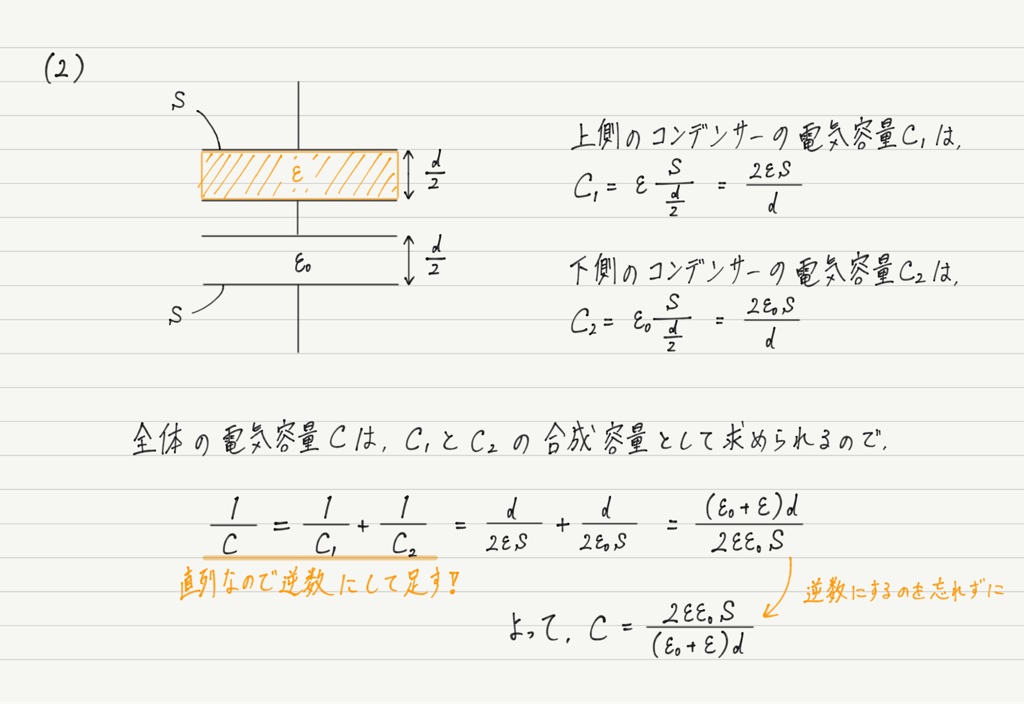 (2)
S
ε
d/2
ε₀
d/2
S
上側のコンデンサーの電気容量C₁は,
C₁ = ε S/(d/2) = 2εS/d
下側のコンデンサーの電気容量C₂は,
C₂ = ε₀ S/(d/2) = 2ε₀S/d
全体の電気容量Cは, C₁とC₂の合成容量として求められるので,
1/C = 1/C₁ + 1/C₂ = d/2εS + d/2ε₀S = (ε₀+ε)d/2εε₀S
直列なので逆数にして足す!
逆数にするのを忘れずに
よって, C = 2εε₀S/(ε₀+ε)d